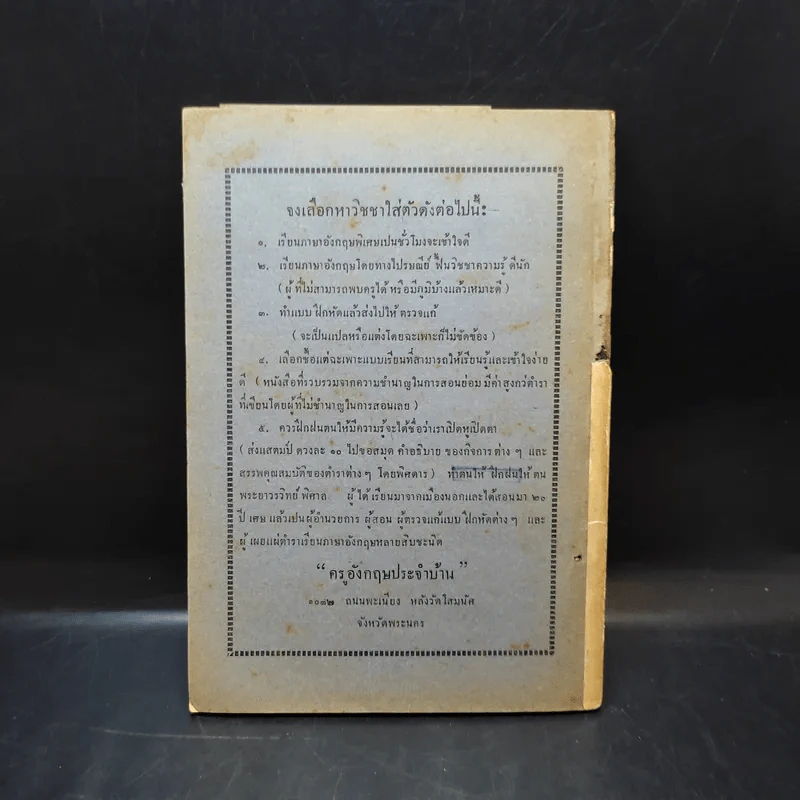 จงเลือกหาวิชชาใส่ตัวดังต่อไปนี้:—
๑. เรียนภาษาอังกฤษพิเศษเปนชั่วโมงจะเข้าใจดี
๒. เรียนภาษาอังกฤษโดยทางไปรษณีย์ ฟื้นวิชชาความรู้ ดีนัก
(ผู้ที่ไม่สามารถพบครูได้ หรือมีภูมิบ้างแล้วเหมาะดี)
๓. ทำแบบฝึกหัดแล้วส่งไปให้ ตรวจแก้
(จะเป็นแปลหรือแต่งโดยฉะเพาะก็ไม่ขัดข้อง)
๔. เลือกซื้อแต่ฉะเพาะแบบเรียนที่สามารถให้เรียนรู้และเข้าใจง่าย
ดี (หนังสือที่รวบรวมจากความชำนาญในการสอนย่อม มีค่า สูงกว่ตำรา
ที่เขียนโดยผู้ที่ไม่ชำนาญในการสอนเลย)
๕. ควรฝึกฝนตนให้มีความรู้จะได้ชื่อว่าเราเปิดหูเปิดตา
(ส่งแสตมป์ ดวงละ ๑๐ ไปขอสมุด คำอธิบาย ของกิจการต่าง ๆ และ
สรรพคุณสมบัติของตำราต่าง ๆ โดยพิศดาร) ทำตนให้ ฝึกฝนให้ ตน
พระยาวรวิทย์พิศาล ผู้ได้ เรียนมาจากเมืองนอกและได้สอนมา ๒๐
ปี เศษ แล้วเปนผู้อำนวยการ ผู้สอน ผู้ตรวจแก้แบบ ฝึกหัดต่าง ๆ และ
ผู้ เผยแผ่ตำราเรียนภาษาอังกฤษหลายสิบชะนิด
“ครูอังกฤษประจำบ้าน”
ถนนพะเนียง หลังวัดโสมนัศ
จังหวัดพระนคร